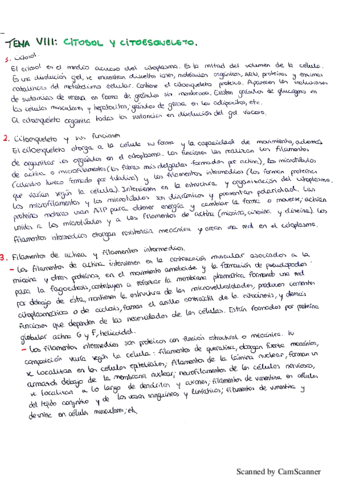 TEMA VIII: CITOSOL Y CITOESQUELETO.
1. Citosol.
El citosol es el medio acuoso del citoplasma. Es la mitad del volumen de la célula.
Es una disolución gel, se encuentran disueltos iones, moléculas orgánicas, ARN, proteínas y enzimas
catabolismo del metabolismo celular. Contiene el citoesqueleto proteico. Aparecen las inclusiones
de sustancias de reserva en forma de gránulos sin membrana. Existen gránulos de glucógeno en
las células musculares y hepatocitos, gránulos de grasa en los adipocitos, etc.
El citoesqueleto organiza todas las sustancias en disolución del gel viscoso.
2. Citoesqueleto y sus funciones
El citoesqueleto otorga a la célula su forma y la capacidad de movimiento, además
de organizar los orgánulos en el citoplasma. Las funciones las realizan los filamentos
de actina o microfilamentos (las fibras más delgadas formadas por actina), los microtúbulos
(cilindro hueco formado por tubulina) y los filamentos intermedios (los forman proteínas
que varían según la célula). Intervienen en la estructura y organización del citoplasma.
Los microfilamentos y los microtúbulos son dinámicos y presentan polaridad. Las
proteínas motoras usan ATP para obtener energía y cambiar la forma o moverse; actúan
unidas a los microtúbulos y a los filamentos de actina (miosina, kinesina y dineína). Los
filamentos intermedios otorgan resistencia mecánica y crean una red en el citoplasma.
3. Filamentos de actina y filamentos intermedios.
- Los filamentos de actina intervienen en la contracción muscular asociados a la
miosina y otras proteínas, en el movimiento ameboide y la formación de pseudópodos
para la fagocitosis, contribuyen a reforzar la membrana plasmática, formando una red
por debajo de ésta, mantienen la estructura de las microvellosidades, producen corrientes
citoplasmáticas o de ciclosis, forman el anillo contráctil de la citocinesis, y demás
funciones que dependen de las necesidades de las células. Están formados por proteína
globular actina G y F, helicoidal.
- Los filamentos intermedios son proteicos con función estructural o mecánica. Su
composición varía según la célula: filamentos de queratina, otorgan fuerza mecánica,
se localizan en las células epiteliales; filamentos de la lámina nuclear, forman un
armazón debajo de la membrana nuclear; neurofilamentos de las células nerviosas,
se localizan a lo largo de dendritas y axones; filamentos de vimentina en células
del tejido conjuntivo y de los vasos sanguíneos y linfáticos; filamentos de vimentina y
desmina en células musculares, etc.
Scanned by CamScanner